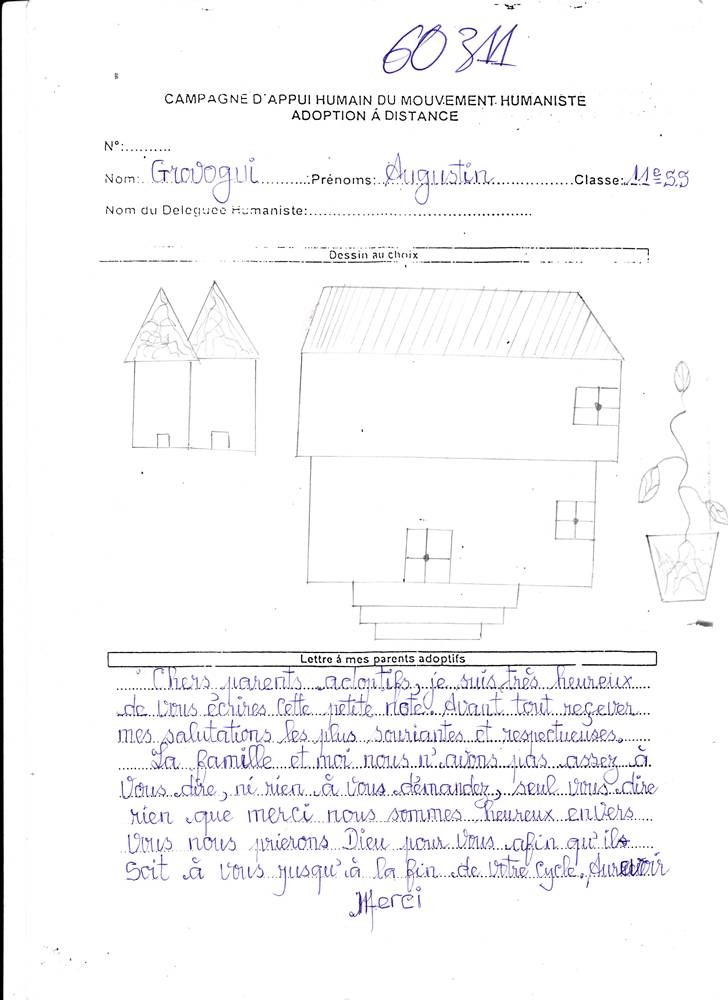 60311
CAMPAGNE D'APPUI HUMAIN DU MOUVEMENT HUMANISTE
ADOPTION Á DISTANCE
N°:..........
Nom: Grovogui Prénoms: Augustin Classe: 11e SS
Nom du Deleguee Humaniste:
Dessin au choix
Lettre á mes parents adoptifs
Chers parents adoptifs, je suis très heureux
de vous écrires cette petite note. Avant tout reçever
mes salutations les plus souriantes et respectueuses.
La famille et moi nous n'avons pas assez à
vous dire, ni rien à vous démander, seul vous dire
rien que merci nous sommes heureux envers
vous nous prierons Dieu pour vous afin qu'ils
soit à vous jusqu'à la fin de votre cycle. Aurevoir
Merci